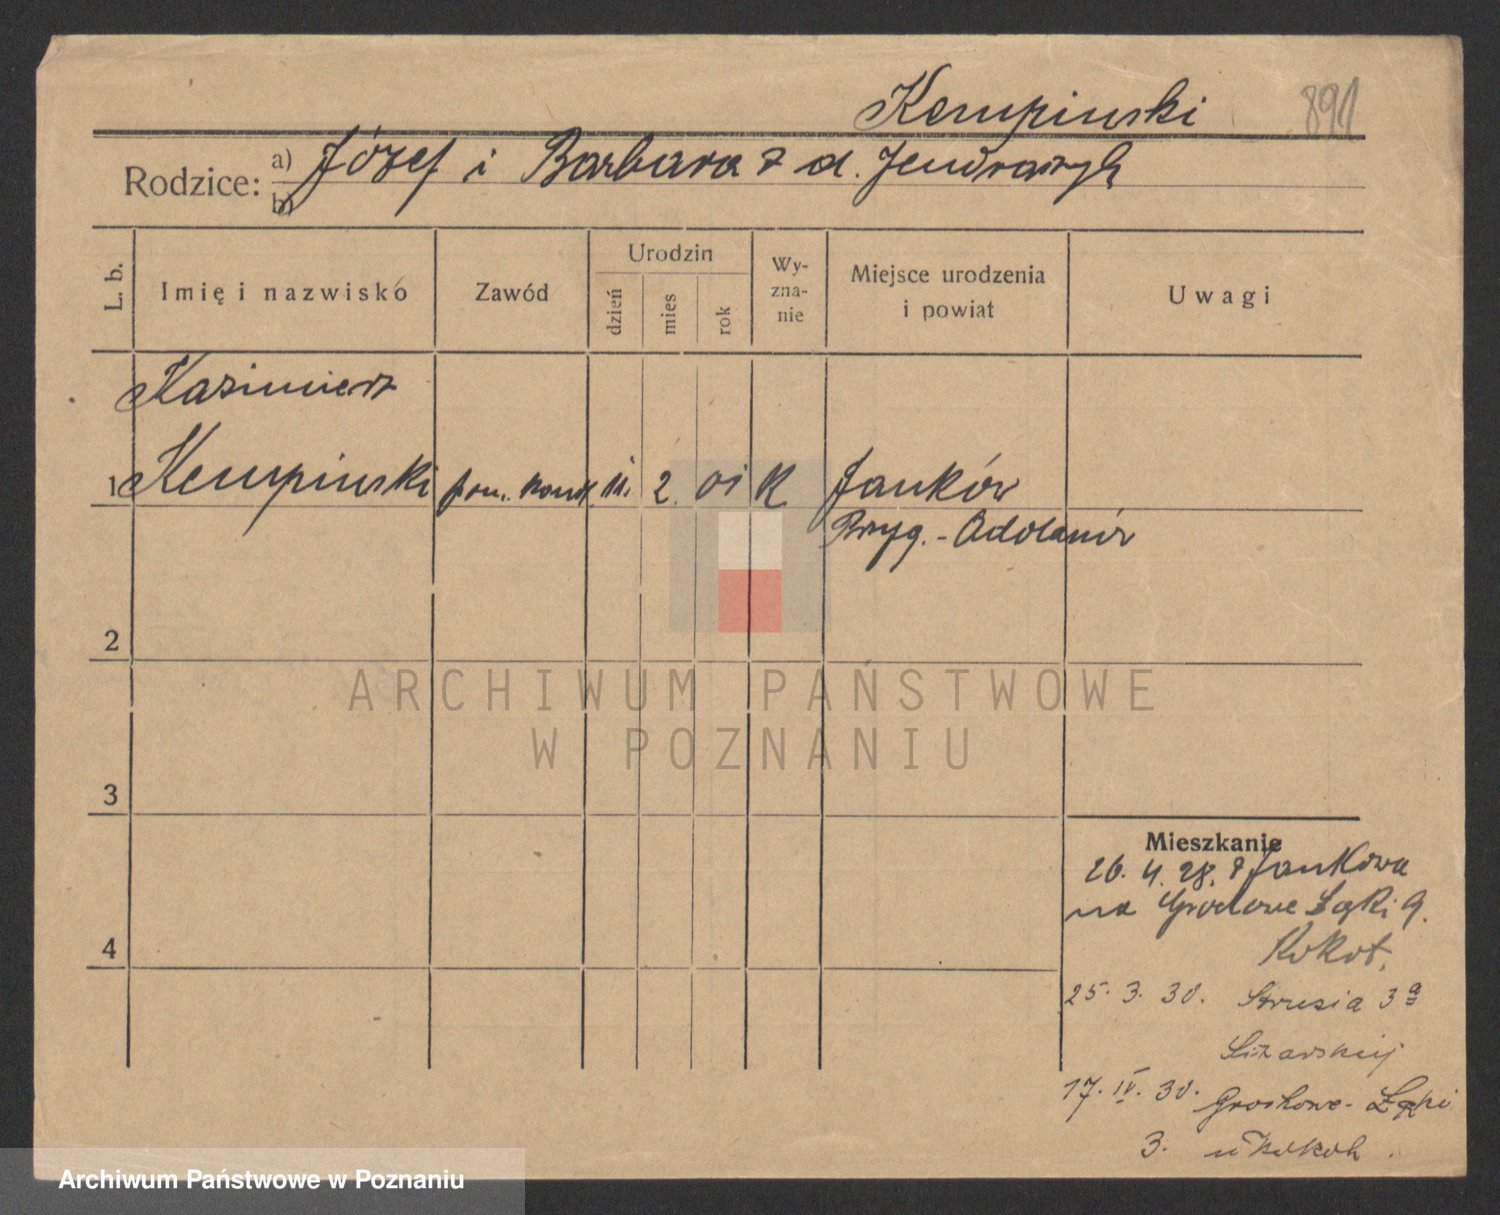 Kempinski 891
Rodzice: a) Józef i Barbara z d. Jendraszyk
b)
L. b. Imię i nazwisko Zawód Urodzin dzień mies rok Wy-zna-nie Miejsce urodzenia i powiat Uwagi
Kazimierz
1 Kempinski pom. 11. 2. 01 K Janków
Przyg. - Odolanów
2
ARCHIWUM PAŃSTWOWE
W POZNANIU
3
Mieszkanie
26. 4. 28. z Jankowa
na Grochowe Łąki 9.
4
Kokot,
25. 3. 30. Strusia 3a
17. IV. 30. Grochowe - Łąki
3. u
Archiwum Państwowe w Poznaniu